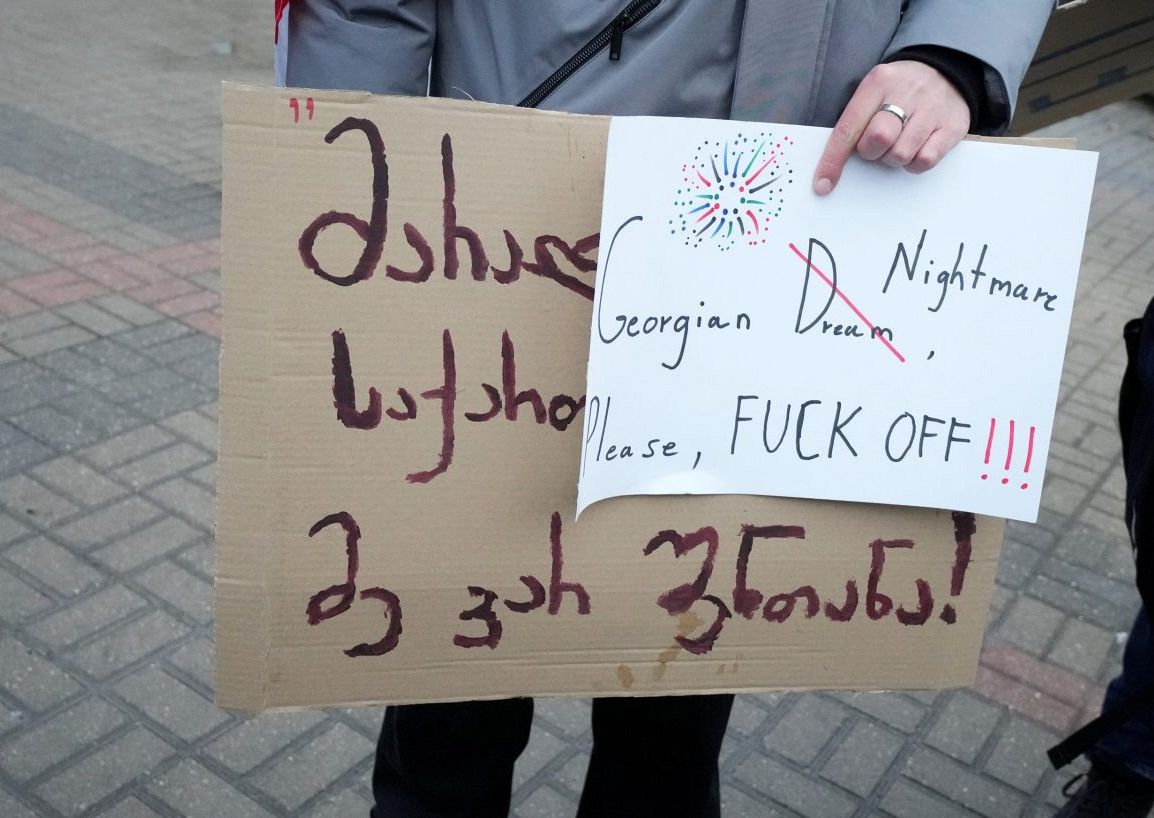 "მარად
საქართ
მე ვარ შენთანა!
Georgian Dream Nightmare,
Please, FUCK OFF!!!